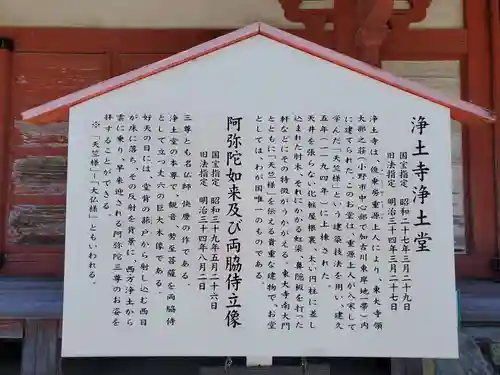 浄土寺浄土堂
国宝指定 昭和二十七年三月二十九日
旧法指定 明治三十四年三月二十七日
浄土寺は、俊乗房重源上人により、東大寺領
大部之荘(小野市中心部で加古川東岸地帯)内
に建てられた。このお堂は、重源上人が入宋して
学んだ「天竺様」という建築技法を用い、建久
五年(一一九四年)に上棟された。
天井を張らない化粧屋根裏、太い円柱に差し
込まれた肘木、それにかかる虹梁、鼻隠板を打った
軒などにその特徴がうかがえる。東大寺南大門
とともに「天竺様」を伝える貴重な建物で、お堂
としてはわが国唯一のものである。
阿弥陀如来及び両脇侍立像
国宝指定 昭和三十九年五月二十六日
旧法指定 明治三十四年八月二日
三尊とも名仏師 快慶の作である。
浄土堂の本尊で、観音 勢至菩薩を両脇侍
として立つ丈六の巨大木像である。
好天の日には、堂背の蔀戸から射し込む西日
が床に落ち、その反射を背景に、西方浄土から
雲に乗り、早来迎される阿弥陀三尊のお姿を
拝することができる。
※「天竺様」「大仏様」ともいわれる。